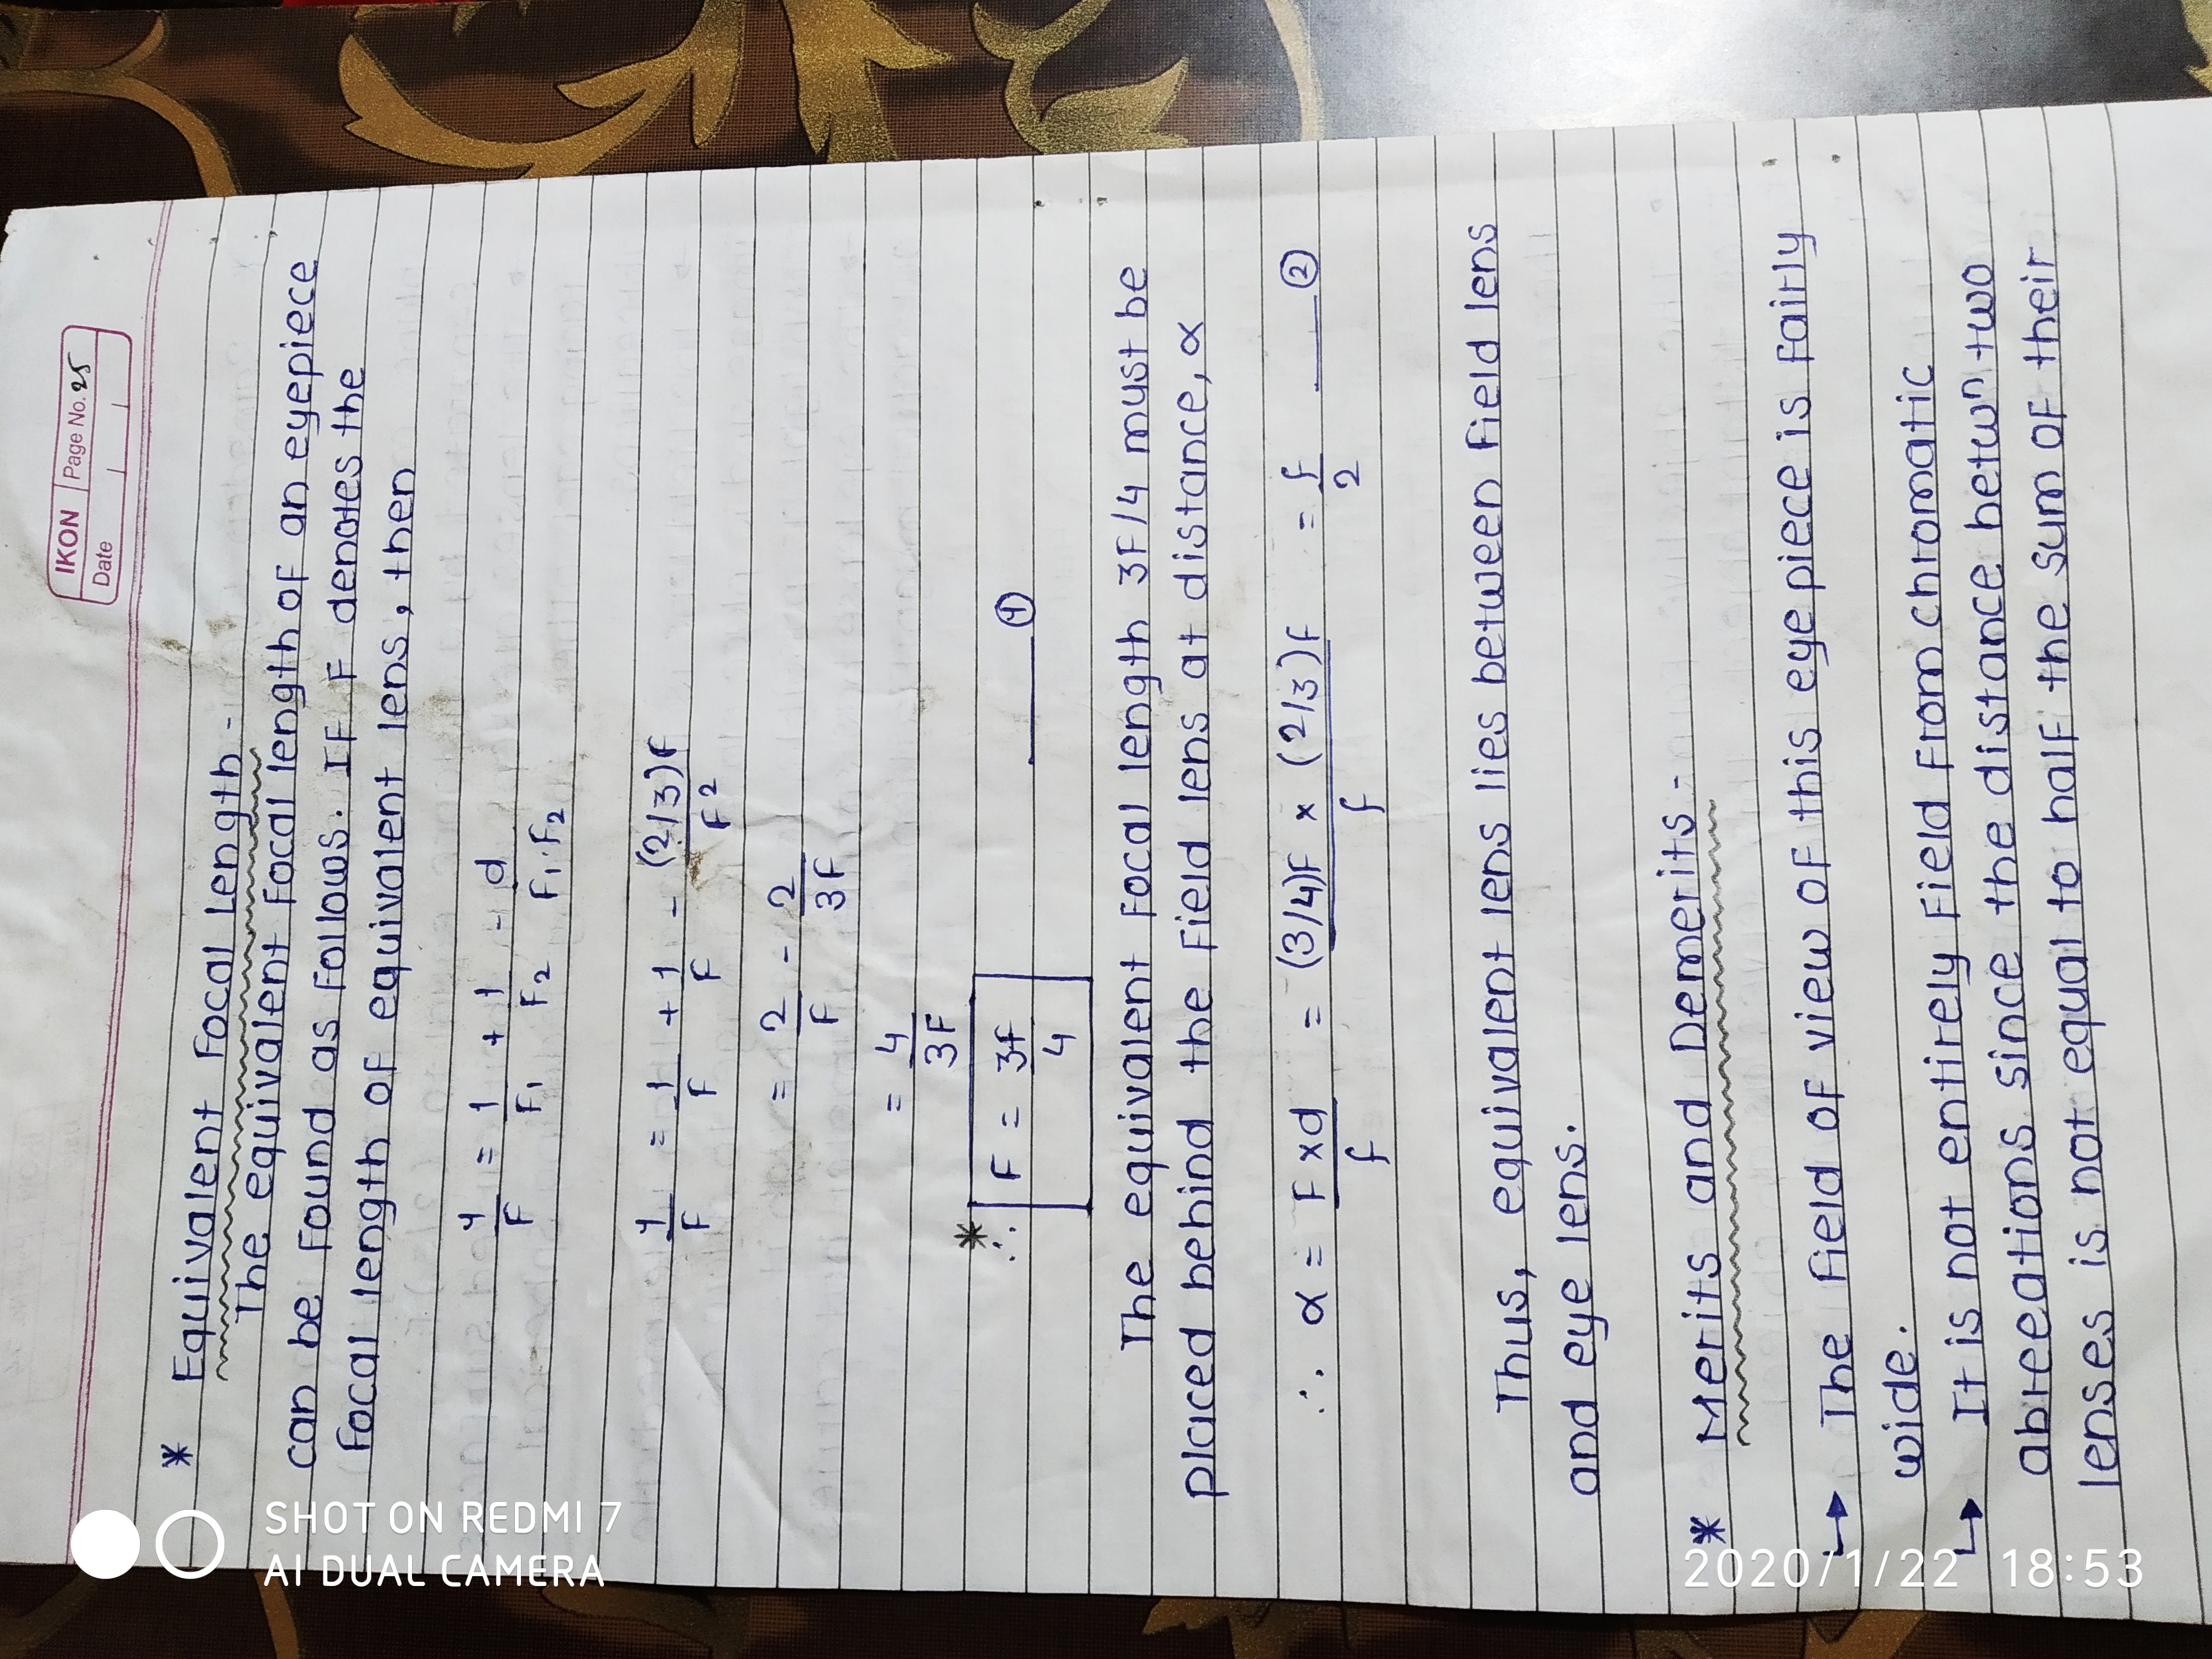 IKON Page No. 25
Date
* Equivalent Focal Length -
The equivalent focal length of an eyepiece
can be found as follows. If F denotes the
focal length of equivalent lens, then
1/F = 1/F₁ + 1/F₂ - d/F₁.F₂
1/F = 1/F + 1/F - (2/3)f/F²
= 2/F - 2/3F
= 4/3F
* ∴ F = 3f/4 ——— ①
The equivalent focal length 3F/4 must be
placed behind the field lens at distance, α
∴ α = F×d/f = (3/4)F × (2/3)f/f = f/2 ——— ②
Thus, equivalent lens lies between field lens
and eye lens.
* Merits and Demerits -
↳ The field of view of this eye piece is fairly
wide.
↳ It is not entirely field from chromatic
abreeations since the distance betwn two
lenses is not equal to half the sum of their
SHOT ON REDMI 7
AI DUAL CAMERA
2020/1/22 18:53